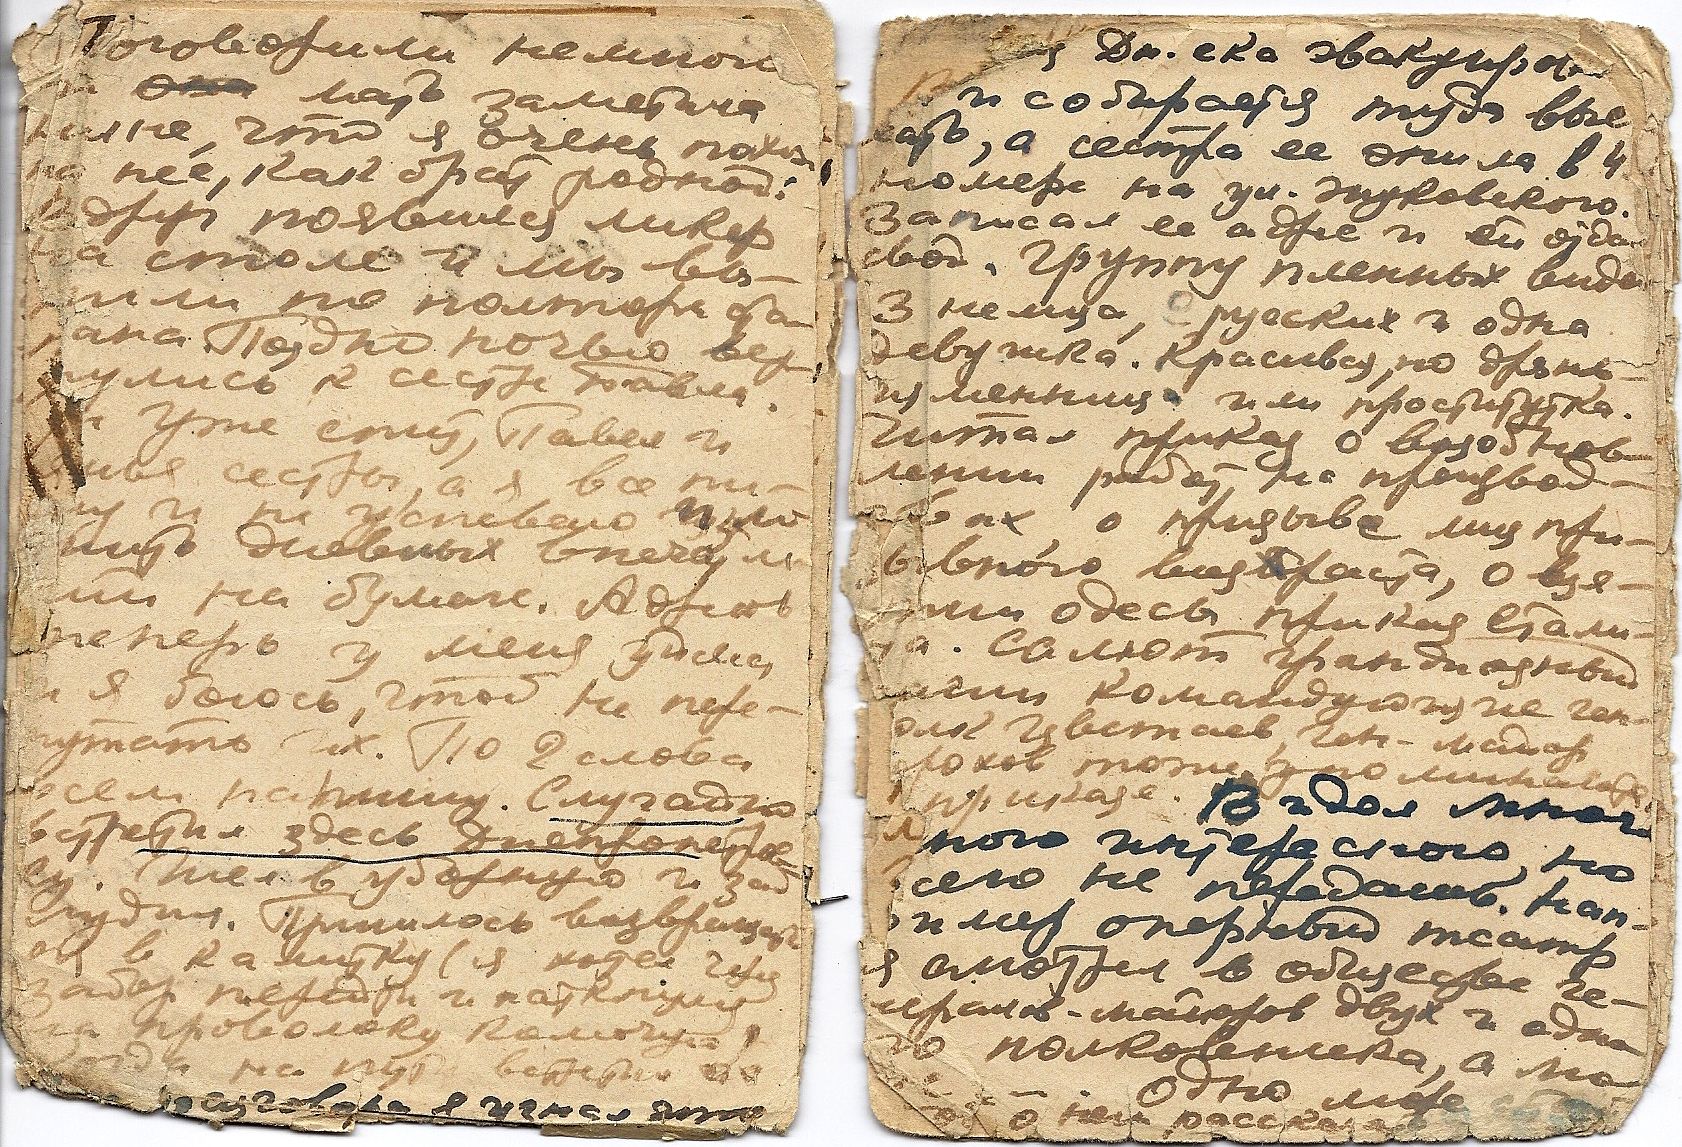 Поговорили немного
и мать заметила
мне, что я очень похож
на неё, как брат родной.
Вдруг появился ликер
на столе и мы вы-
пили по полтора ста-
кана. Поздно ночью вер-
нулись к сестре Павла.
Уже спит, Павел и
сестры, а я все пи-
шу и не успеваю изло
жить дневных впечатле
ний на бумаге. Адресов
теперь у меня уйма
и я боюсь, чтоб не пере-
путать их. По 2 слова
всем напишу. Случайно
встретил здесь днепропетров-
ку. Шел в уборную и заб
лудил. Пришлось возвращать
ся в калитку (я хотел через
забор перейти и наткнулся
на проволоку колючую),
когда на пути встретил
разговора я узнал что
Дн.-ска эвакуирова
и собирается туда вые
хать, а сестра ее жила в 4
номере на ул. Жуковского.
Записал ее адрес и ей отдал
свой. Группу пленных видел
3 немца, русских и одна
девушка. Красивая, но дрянь-
изменница или проститутка.
Читал приказ о возобнов-
лении работ на производ-
ствах, о призыве лиц при-
зывного возраста, о взя-
тии Одессы приказ Стали-
на. Салют грандиозный
нашим командующие ген-
полк Цветаев ген-майор
тоже упоминался
в приказе. Видел много
много интересного, но
всего не передашь. Нап-
ример оперный театр
я смотрел в обществе ге-
нералов-майоров двух и одно
го полковника, а мо
Одно
о нем рассказал